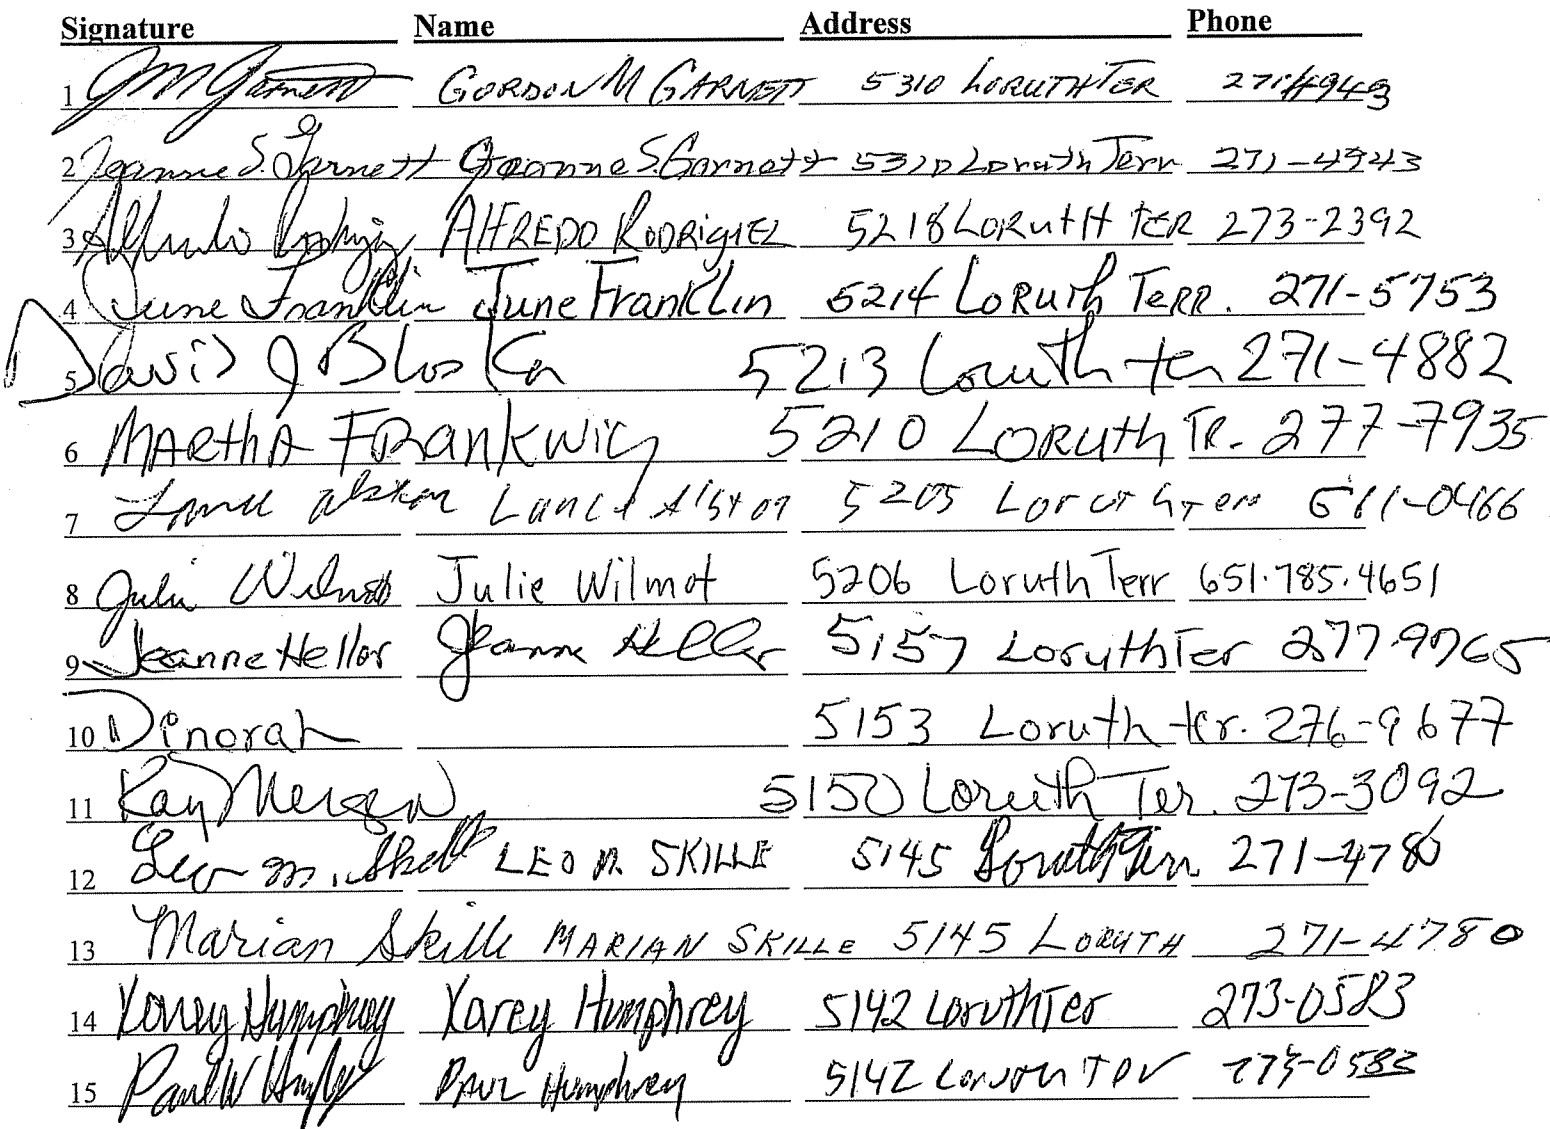 Signature Name Address Phone
1 GORDON M GARNETT 5310 LORUTH TER 271-4943
2 Jeanne S. Garnett Jeanne S. Garnett 5310 Loruth Terr 271-4943
3 Alfredo ALFREDO RODRIGUEZ 5218 LORUTH TER 273-2392
4 June Franklin June Franklin 5214 LORUTH TERR. 271-5753
5 David J Blaska 5213 Loruth ter 271-4882
6 MARTHA FRANKWICZ 5210 LORUTH TR. 277-7935
7 Lance Alston Lance Alston 5205 Loruth Ter 661-0466
8 Julie Wilmot Julie Wilmot 5206 Loruth Terr 651.785.4651
9 Jeanne Heller Jeanne Heller 5157 Loruth Ter 277.9765
10 Dinorah 5153 Loruth ter. 276-9677
11 Kay 5150 Loruth Ter. 273-3092
12 Leo M. Skille LEO M. SKILLE 5145 Loruth Terr 271-478
13 Marian Skille MARIAN SKILLE 5145 LORUTH 271-4780
14 Karey Humphrey Karey Humphrey 5142 Loruth Ter 273-0583
15 Paul W PAUL Humphrey 5142 Loruth Ter 273-0583